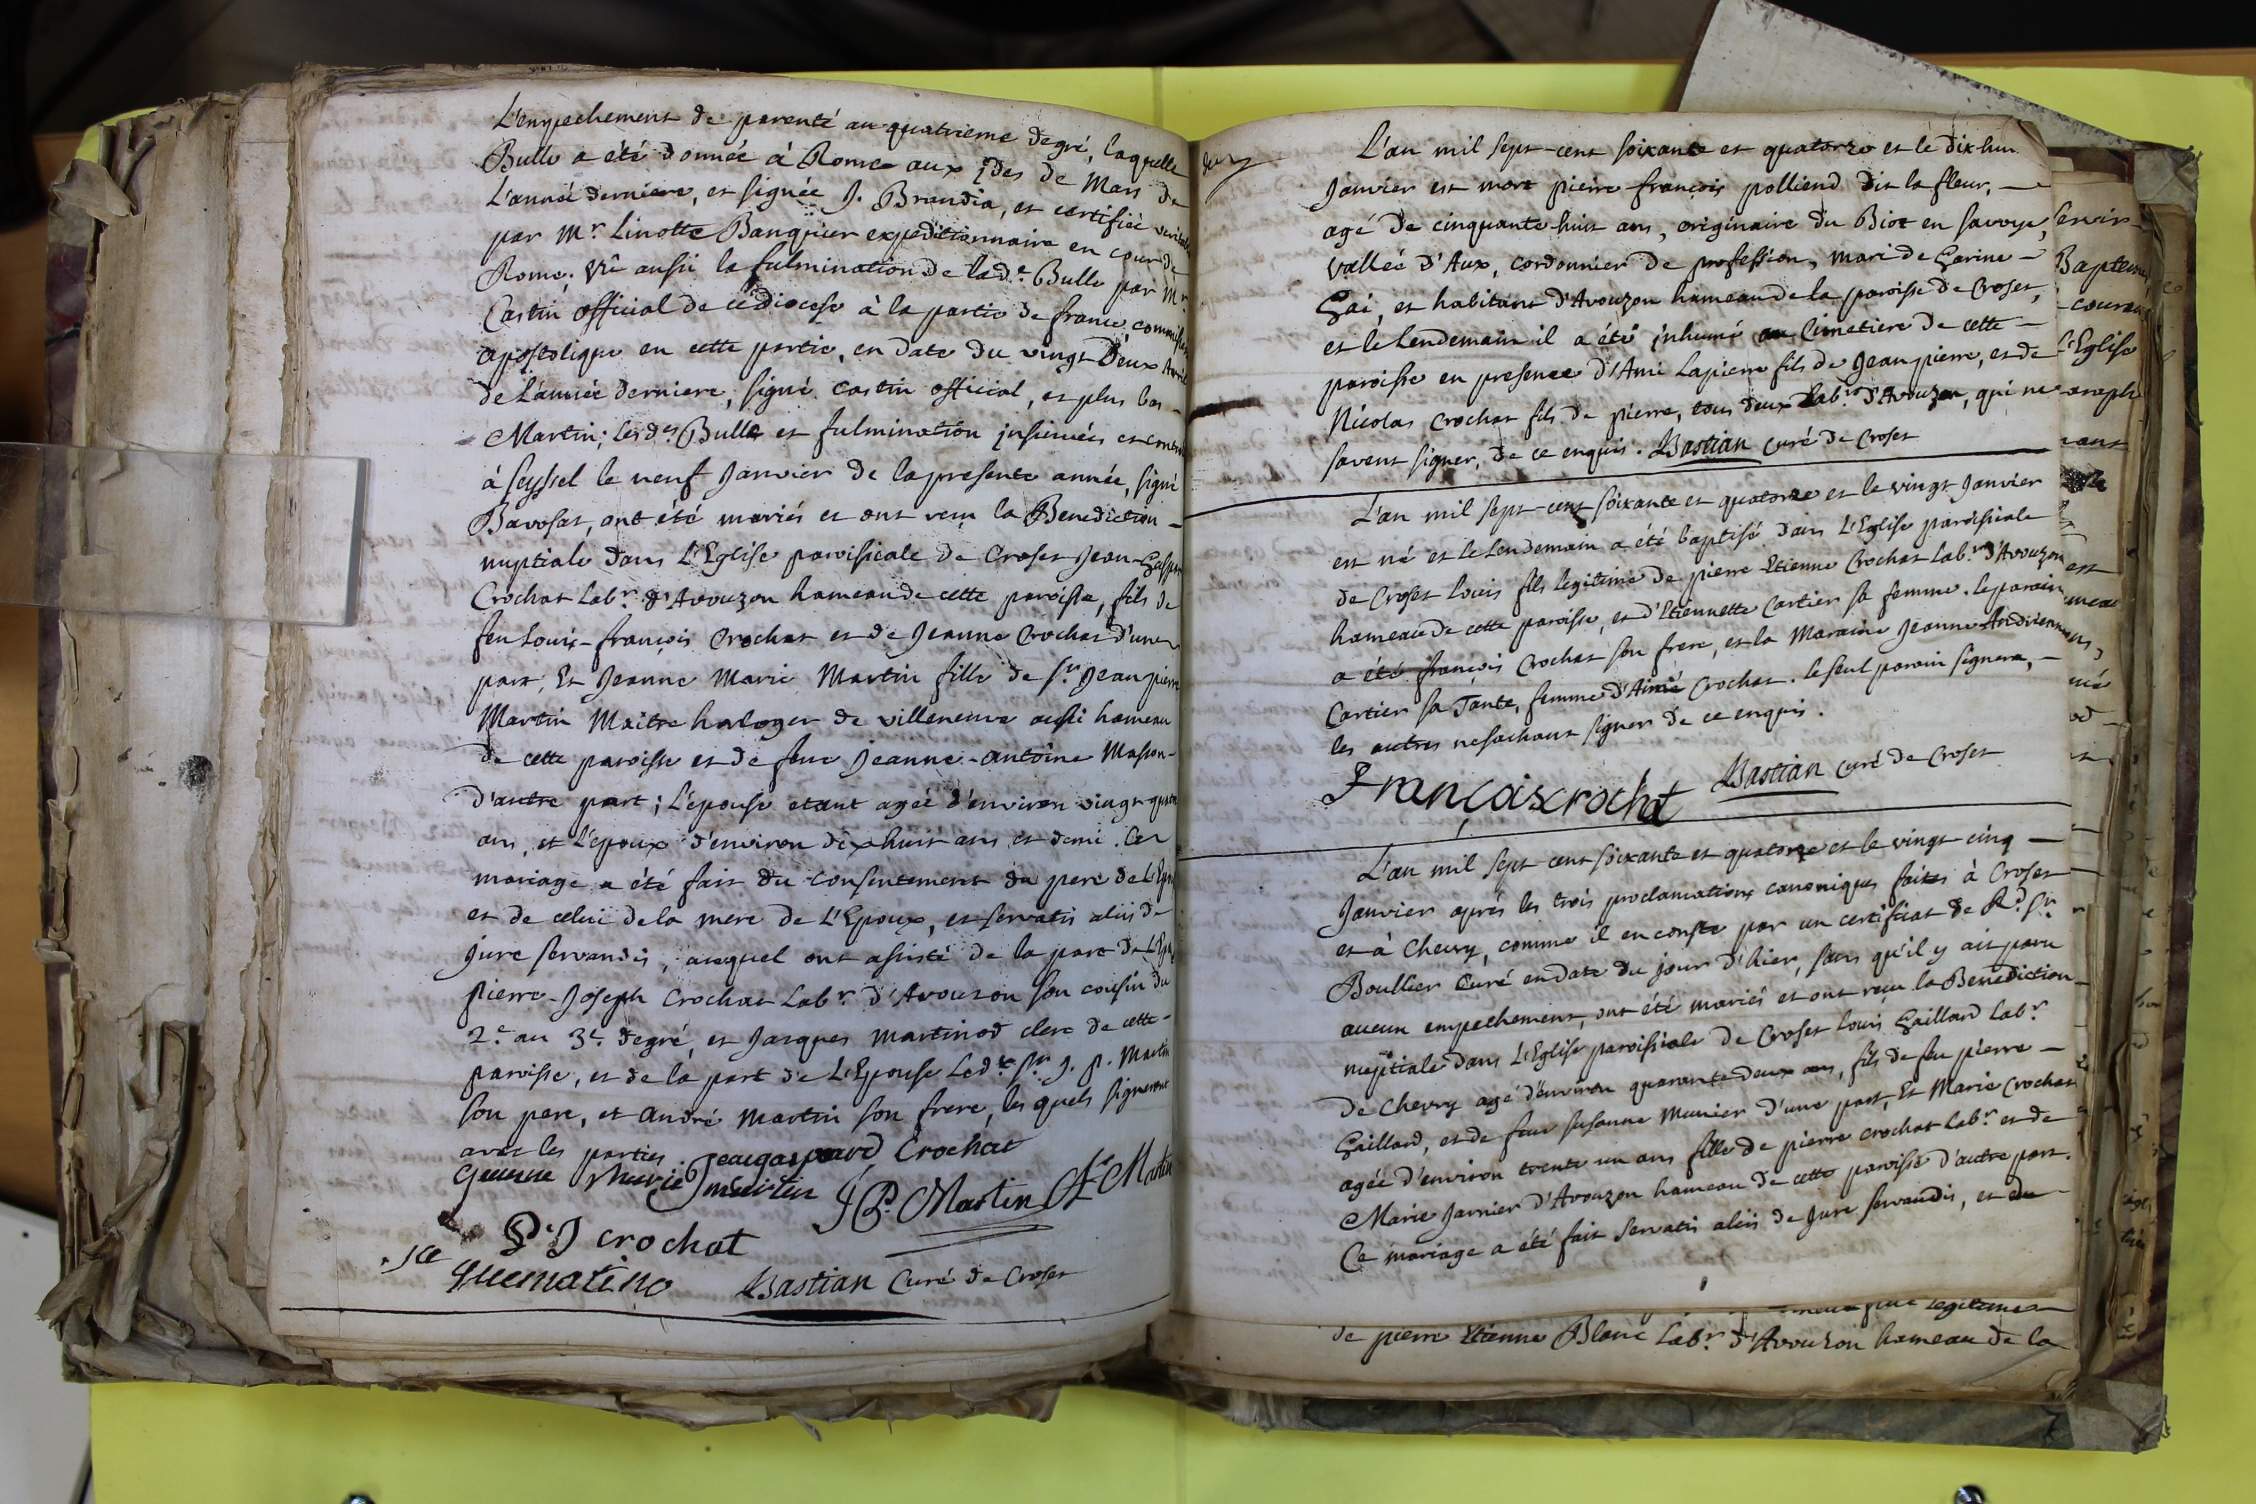 L'empechement de parenté au quatrieme degré, laquelle
Bulle a été donnée à Rome aux ides de Mars de
L'année derniere, et signée J. Brandia, et certifiée
par Mr. Linotte Banquier expeditionnaire en cour de
Rome; Vû aussi la fulmination de lade. Bulle par Mr
Castin official de ce diocese à la partie de france,
apostolique en cette partie, en date du vingt deux Avril
de L'année derniere, signé Castin official, et plus bas
Martin; Lesdes. Bulle et fulmination insinuées et
à Seyssel le neuf Janvier de la presente année, signé
Bavosat, ont été mariés et ont reçu la Benediction
nuptiale dans L'Eglise paroissiale de Croset Jean-
Crochat Labr. d'Avouzon hameau de cette paroisse, fils de
feu Louis-françois Crochat et de Jeanne Crochat d'une
part, Et Jeanne Marie Martin fille de Sr. Jean pierre
Martin Maitre horloger de villeneuve aussi hameau
de cette paroisse et de feue Jeanne-antoine Masson
d'autre part; L'épouse etant agée d'environ vingt
ans, et L'époux d'environ dix huit ans et demi. Ce
mariage a été fait du consentement du pere de
et de celui de la mere de L'Epoux, et servatis aliis de
jure servandis, auquel ont assisté de la part de
pierre-Joseph Crochat Labr. d'Avouzon son cousin du
2e. au 3e. degré, et Jacques Martinod clerc de cette
paroisse, et de la part de L'Epouse Ledt. Sr. J. p. Martin
son pere, et andré Martin son frere, les quels signeront
avec les parties
Jeanne Marie martin Jeangaspard Crochat
J P. Martin Martin
P. J crochat
Bastian Curé de Croset
L'an mil sept-cent soixante et quatorze et le dix-
Janvier est mort pierre-françois polliend dit la fleur,
agé de cinquante-huit ans, originaire du Biot en Savoye,
vallée d'Aux, cordonnier de profession, mari de
Gai, et habitant d'Avouzon hameau de la paroisse de Croset,
et le Lendemain il a été inhumé au Cimetiere de cette
paroisse en presence d'Ami Lapierre fils de Jean pierre, et de
Nicolas Crochat fils de pierre, tous deux Labrs. d'Avouzon, qui ne
savent signer, de ce enquis. Bastian Curé de Croset
L'an mil sept-cent soixante et quatorze et le vingt Janvier
est né et le Lendemain a été baptisé dans L'Eglise paroissiale
de Croset Louis fils legitime de pierre Etienne Crochat Labr. d'Avouzon
hameau de cette paroisse, et d'Etiennette Cartier sa femme. Le parain
a été françois Crochat son frere, et la Maraine Jeanne Andrienne
Cartier sa Tante, femme d'Aimé Crochat. le seul parain signera,
les autres ne sachant signer de ce enquis.
Françoiscrochat Bastian Curé de Croset
L'an mil sept cent soixante et quatorze et le vingt cinq
Janvier aprés les trois proclamations canoniques faites à Croset
et à Chevry, comme il en conste par un certificat de Rd. Sr.
Boullier Curé en date du jour d'hier, sans qu'il y ait paru
aucun empechement, ont été mariés et ont reçu la Benediction
nuptiale dans L'Eglise paroissiale de Croset Louis Gaillard Labr.
de Chevry agé d'environ quarante deux ans, fils de feu pierre
Gaillard, et de feue Susanne Munier d'une part, Et Marie Crochat
agée d'environ trente un ans fille de pierre crochat Labr. et de
Marie Jarnier d'Avouzon hameau de cette paroisse d'autre part.
Ce mariage a été fait servatis aliis de Jure servandis, et du
legitime
de pierre Etienne Blanc Labr. d'Avouzon hameau de la